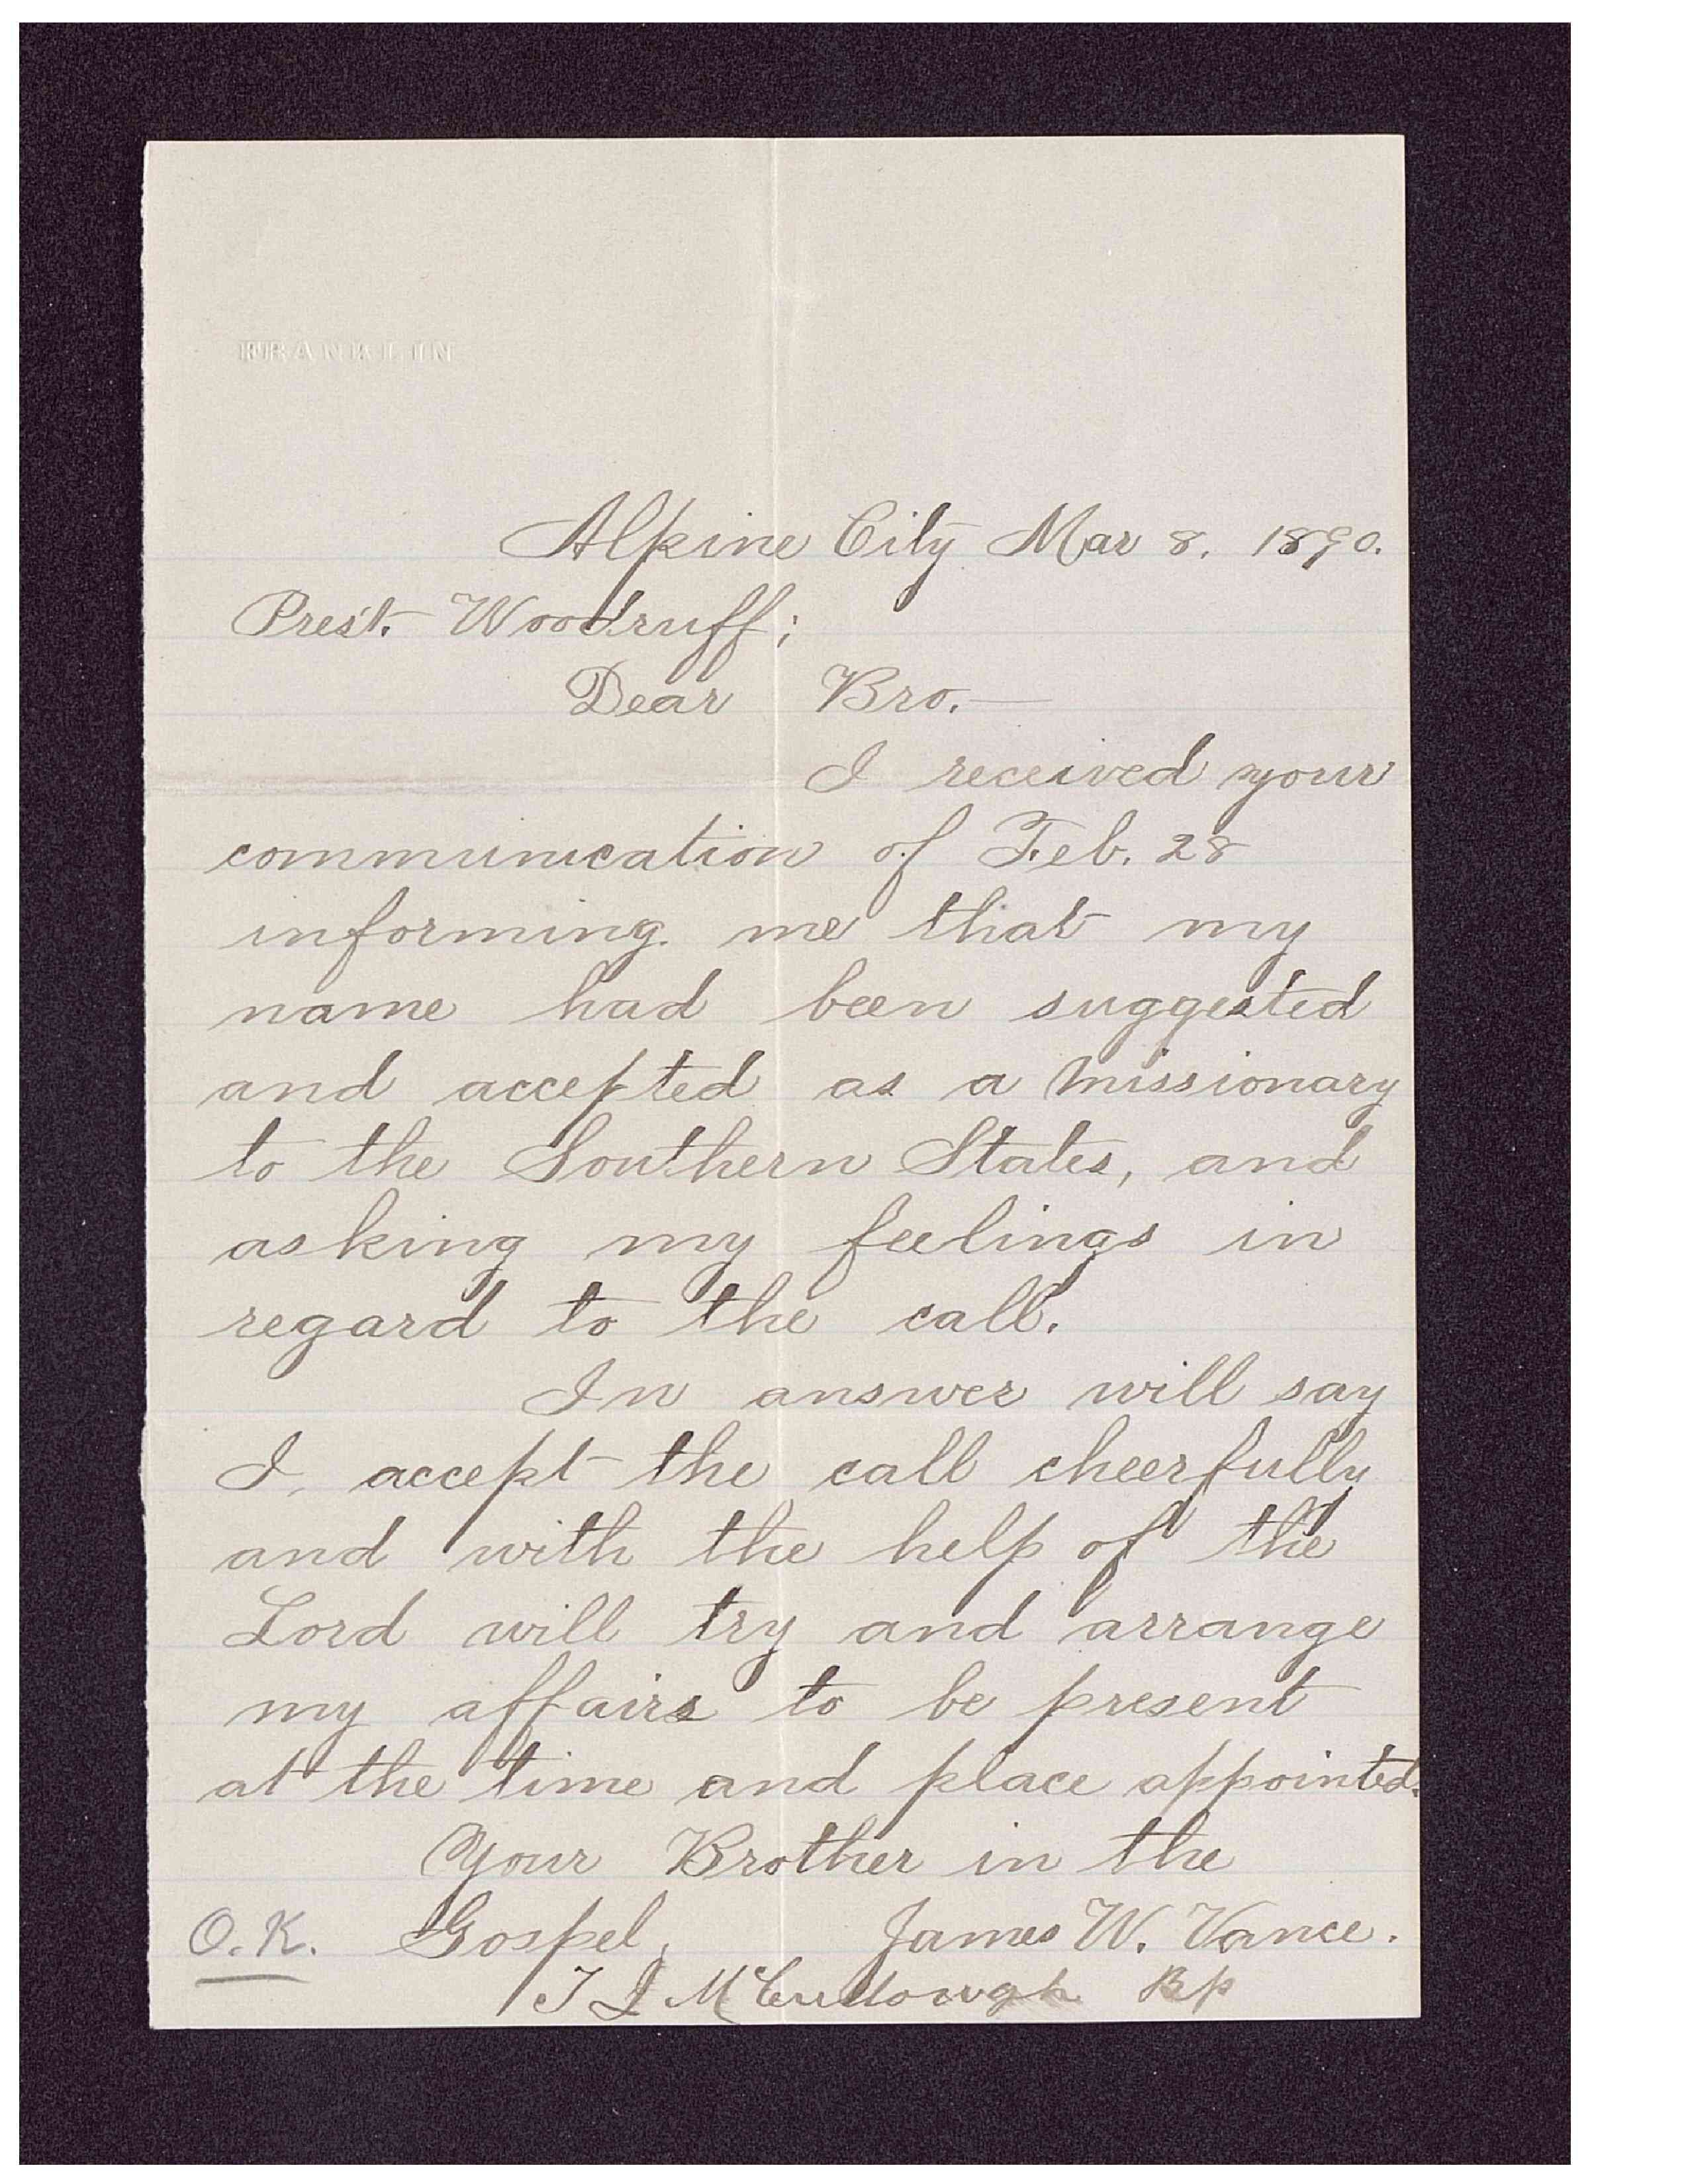 FRANKLIN
Alpine City Mar 8. 1890.
Prest. Woodruff;
Dear Bro.—
I received your
communication of Feb. 28
informing me that my
name had been suggested
and accepted as a missionary
to the Southern States, and
asking my feelings in
regard to the call.
In answer will say
I, accept the call cheerfully
and with the help of the
Lord will try and arrange
my affairs to be present
at the time and place appointed.
Your Brother in the
O.K. Gospel, James W. Vance.
T J McCullough Bp